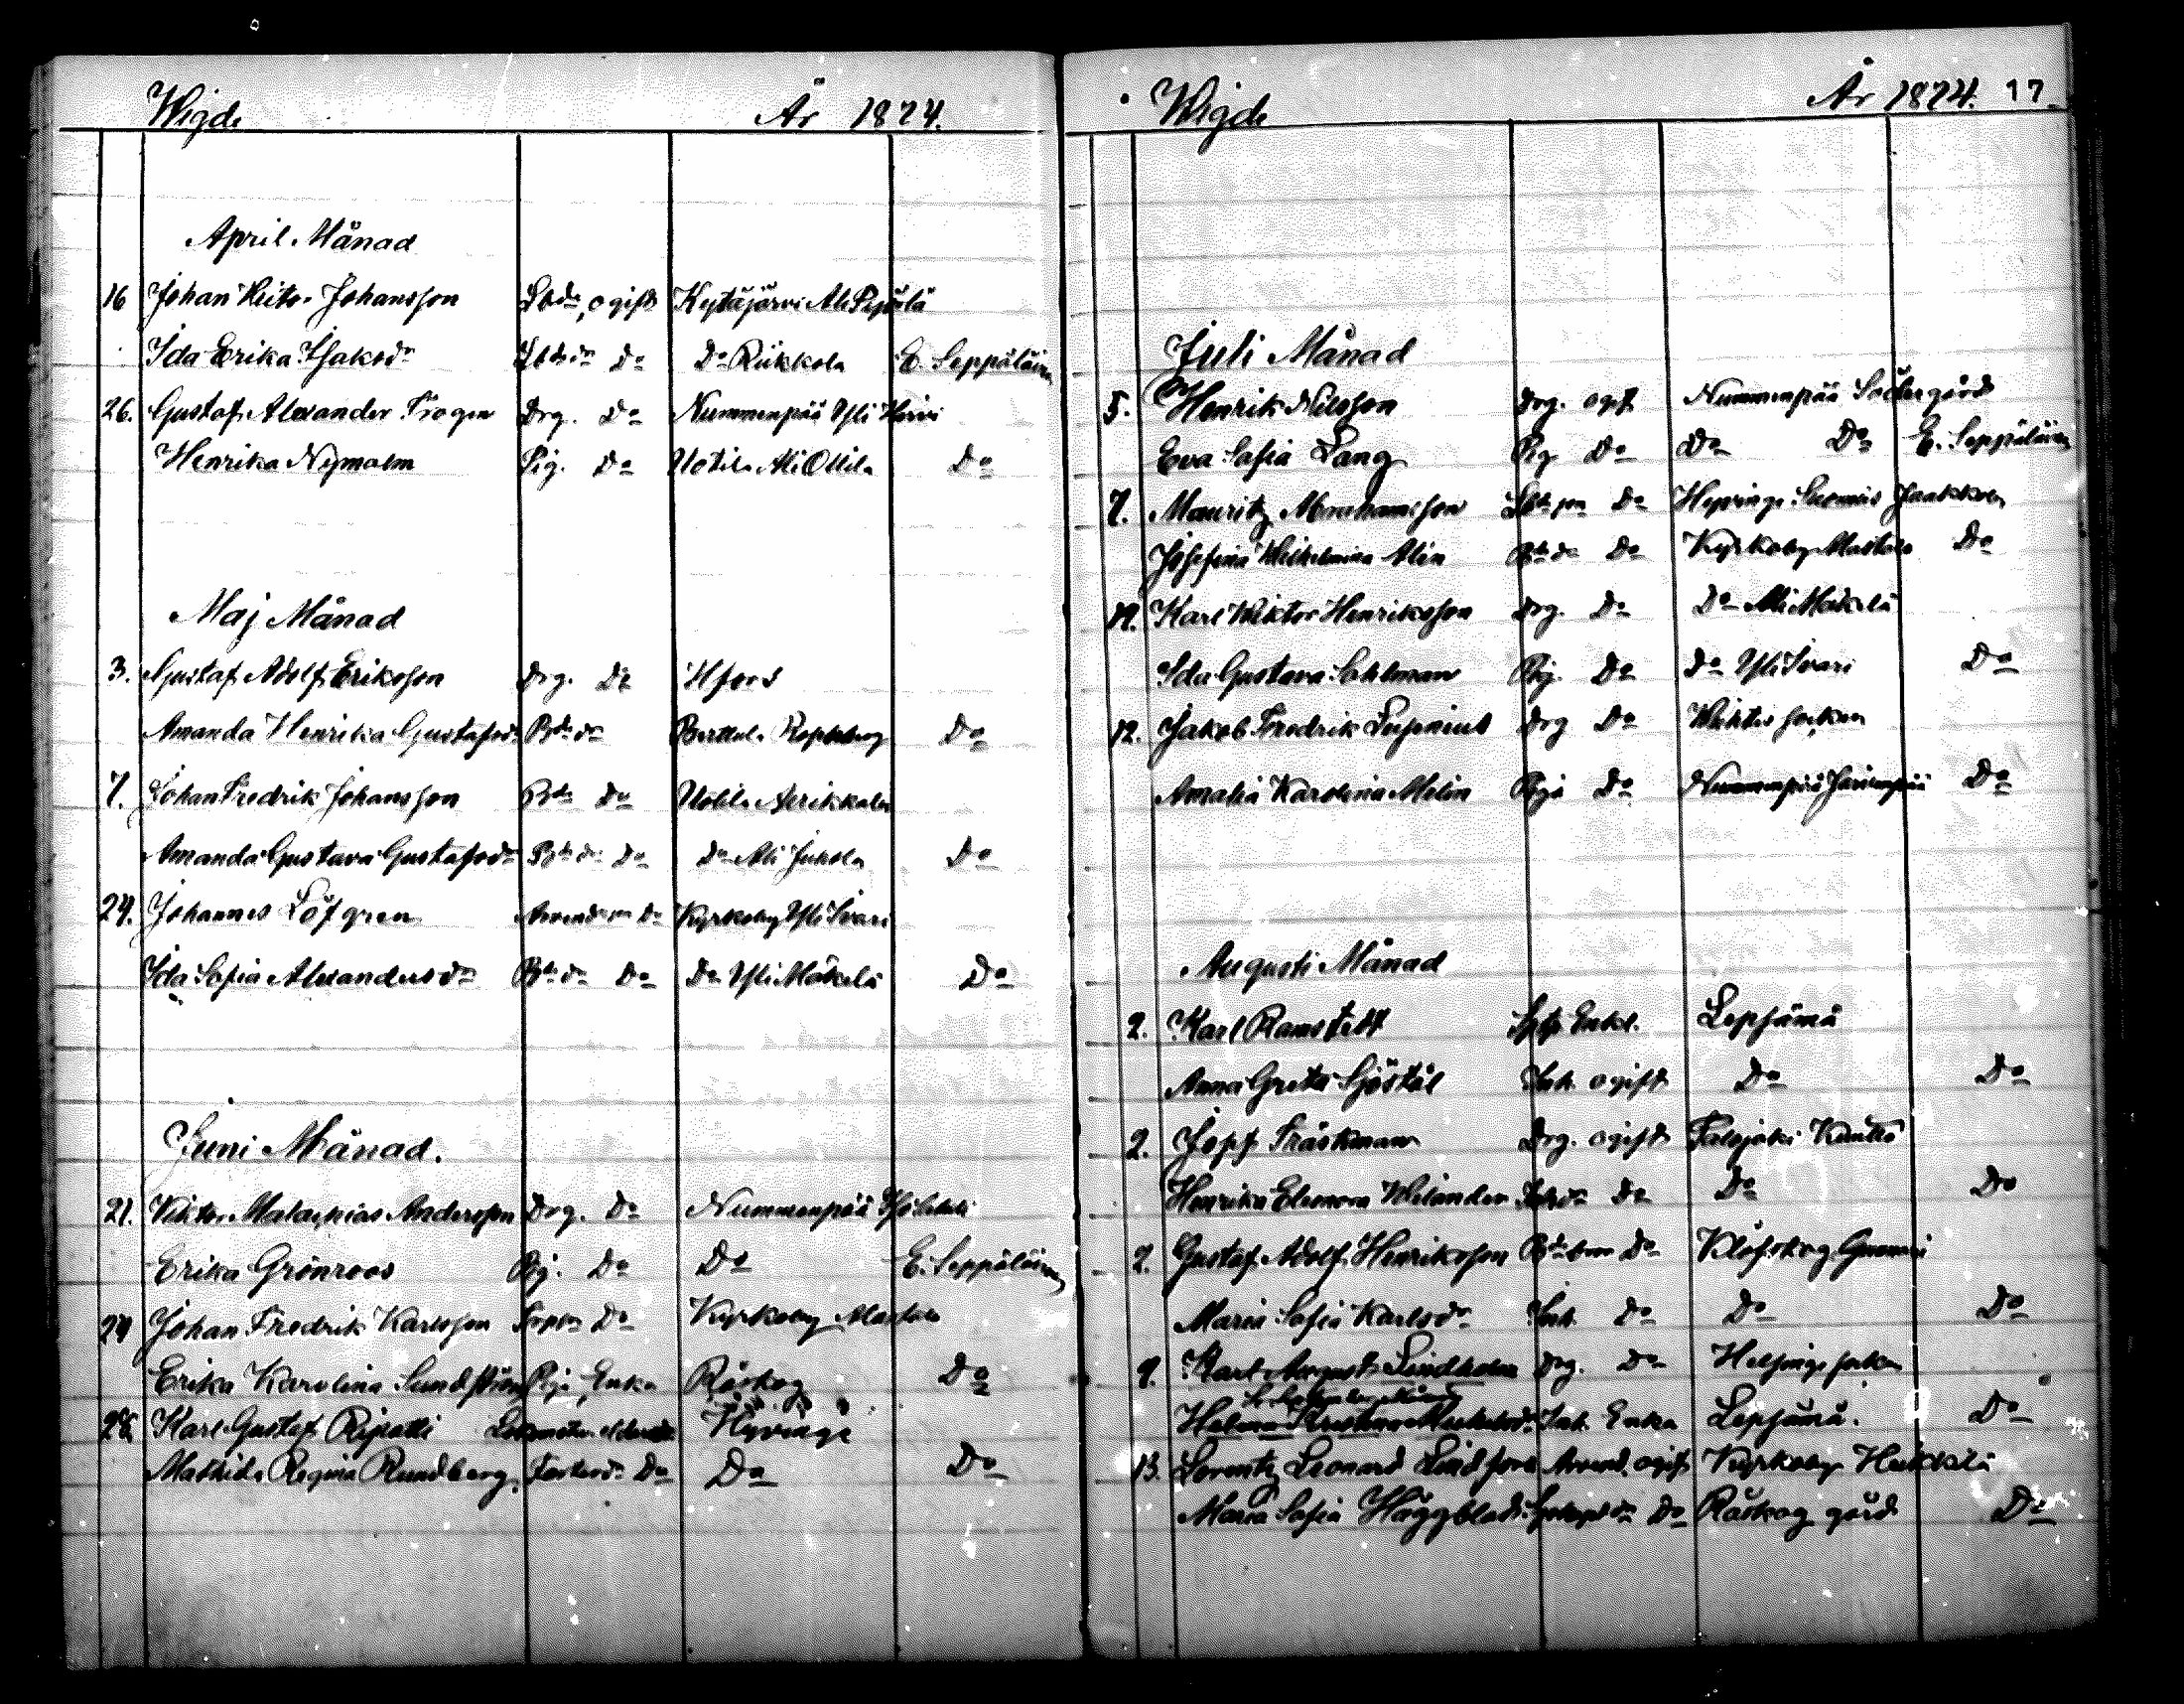 Wigde År 1874.
April Månad
16 Johan Johansson ogift Kytäjärvi Ali Seppälä
Ida Erika Isaksdr Do Do Riikkola E. Seppäläinen
26. Gustaf Alexander Frogen Drg. Do Nummenpää Yli
Henrika Nymalm Pig. Do Uotila Ali Ollila Do
Maj Månad
3. Gustaf Adolf Eriksson Drg. Do Hfors
Amanda Henrika Gustafsdr Bdedr Do
7. Johan Fredrik Johansson Bde Do Uotila
Amanda Gustava Gustafsdr Bdedr Do Do Ali Jukola Do
24. Johannes Löfgren Do Kyrkoby Yli
Ida Sofia Alexandersdr Bdedr Do Do Yli Mäkelä Do
Juni Månad.
21. Viktor Malakias Andersson Drg. Do Nummenpää
Erika Grönroos Pig. Do Do E. Seppäläinen
24 Johan Fredrik Karlsson Do Kyrkoby
Erika Karolina Sundström Piga, Enka Råskog Do
28. Karl Gustaf Ripatti Hyvinge
Mathilda Regina Rundberg. Do Do Do
Wigde År 1874. 17.
Juli Månad
5. Henrik Nilsson Drg. ogft Nummenpää Södergård
Eva Sofia Lang Pig Do Do Do E. Seppäläinen
7. Mauritz Abrahamsson Do Hyvinge Jaakkola
Josefina Wilhelmina Alin Do Kyrkoby Do
19. Karl Wiktor Henriksson Drg. Do Do Ali Mäkelä
Ida Gustava Sahlman Pig. Do Do Yli Do
12. Jakob Fredrik Drg Do Wichtis socken
Amalia Karolina Melin Piga Do Nummenpää Do
Augusti Månad
2. Karl Ramstedt Enkl. Lepsämä
Anna Greta Sjöstål Inh. ogift Do Do
2. Josef Träskman Drg. ogift
Henrika Eleonora Welander Do Do Do
2. Gustaf Adolf Henriksson Do Klöfskog
Maria Sofia Karlsdr Inh. Do Do Do
9. Karl August Lindholm Drg. Do Helsinge socken
Inh. Enka Lepsämä. Do
13. Lorentz Leonard Lindfors Arrend. ogift Kyrkoby Heikkilä
Maria Sofia Häggblad Do Råskog gård Do